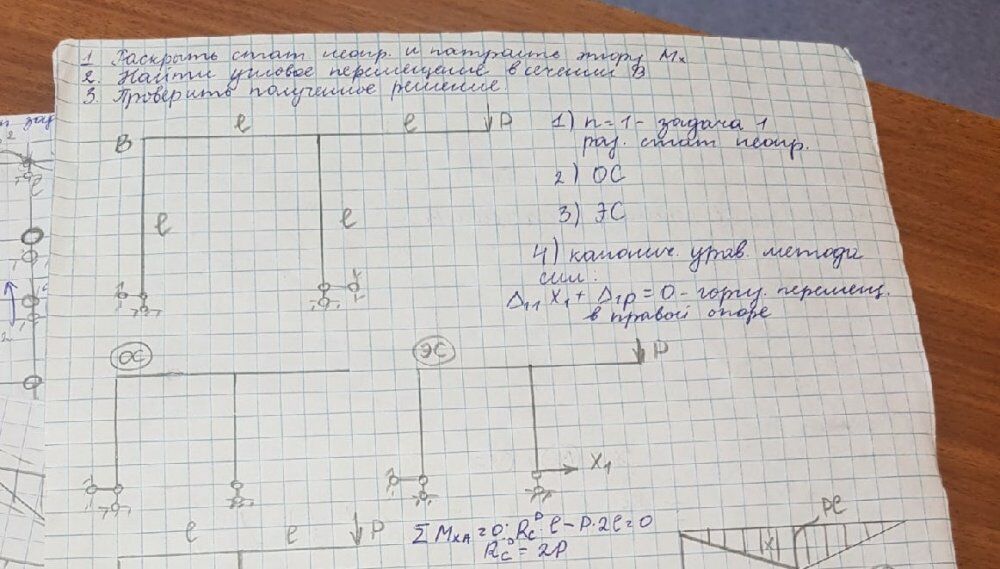 1 Раскрыть стат неопр. и построить эпюру Mx
2. Найти угловое перемещение в сечении B
3. Проверить полученное решение
l
l
P
B
l
l
1) n=1 - задача 1
раз. стат неопр.
2) ОС
3) ЭС
4) канонич. урав. метода
сил:
Δ₁₁ X₁ + Δ₁p = 0 - гориз. перемещ.
в правой опоре
ОС
ЭС
P
X₁
l
l
P
ΣMxA = 0; Rcᴾ·l - P·2l = 0
Rcᴾ = 2P
Pl